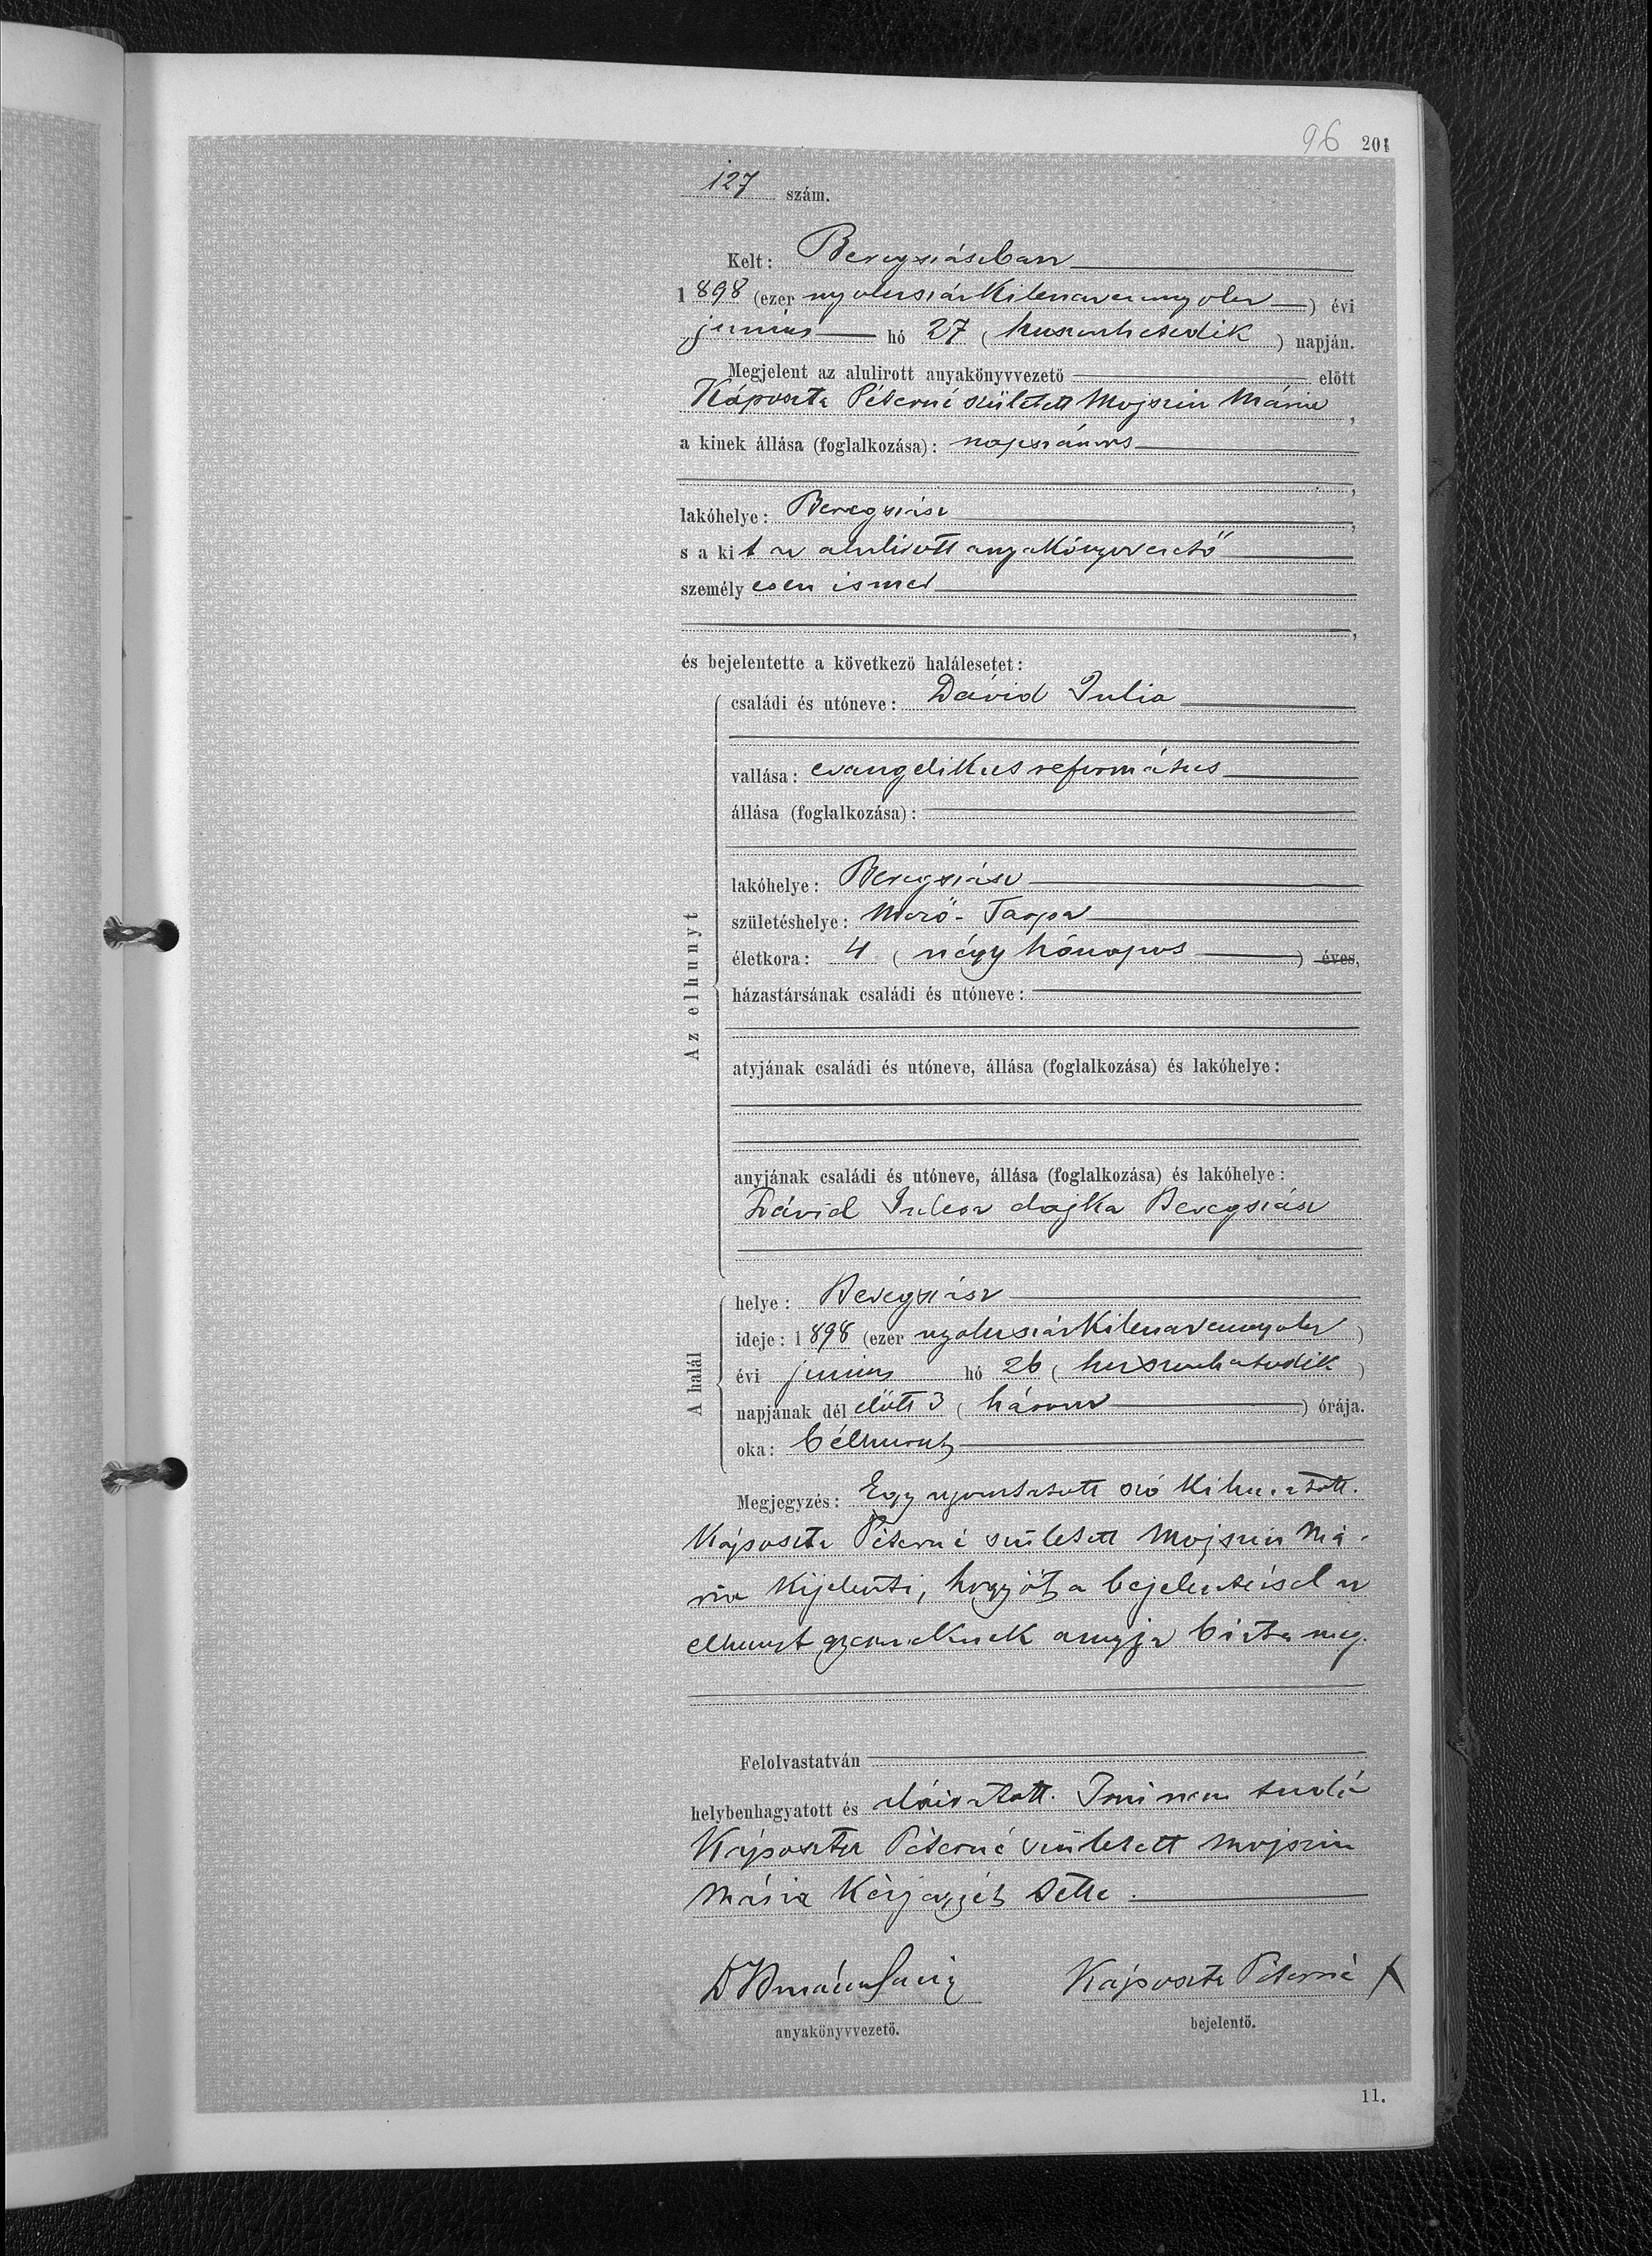 96 201
127 szám.
Kelt: Beregszászban
1898 (ezer nyolcszázkilencvennyolc) évi
junius hó 27 (huszonhetedik) napján.
Megjelent az alulirott anyakönyvvezető előtt
Káposzta Péterné született Mojszin Mária,
a kinek állása (foglalkozása): napszámos
,
lakóhelye: Beregszász,
s a kit az alulirott anyakönyvvezető
személyesen ismer
,
és bejelentette a következő halálesetet:
Az elhunyt
családi és utóneve: Dávid Julia
vallása: evangelikus református
állása (foglalkozása):
lakóhelye: Beregszász
születéshelye: Mező-Tarpa
életkora: 4 (négy hónapos) éves,
házastársának családi és utóneve:
atyjának családi és utóneve, állása (foglalkozása) és lakóhelye:
anyjának családi és utóneve, állása (foglalkozása) és lakóhelye:
Dávid dajka Beregszász
A halál
helye: Beregszász
ideje: 1898 (ezer nyolcszázkilencvennyolc)
évi junius hó 26 (huszonhatodik)
napjának dél előtt 3 (három) órája.
oka: bélhurut
Megjegyzés: Egy nyomtatott szó kihuzatott.
Káposzta Péterné született Mojszin Má-
ria kijelenti, hogy őt a bejelentéssel az
elhunyt gyermeknek anyja bizta meg.
Felolvastatván
helybenhagyatott és aláiratott. Irni nem tudó
Káposzta Péterné született Mojszin
Mária kézjegyét tette.
Káposzta Péterné X
anyakönyvvezető. bejelentő.
11.